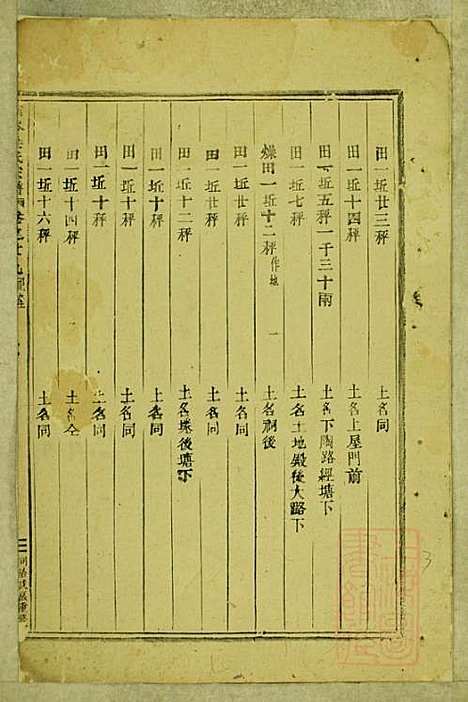 田一坵廿三秤 土名同
田一坵十四秤 土名上屋門前
田一坵五秤一千三十兩 土名下陶路經塘下
田一坵七秤 土名土地殿後大路下
燥田一坵十二秤作地 土名祠後
田一坵廿秤 土名同
田一坵廿秤 土名同
田一坵十二秤 土名塋後塘下
田一坵十秤 土名同
田一坵十秤 土名同
田一坵十秤 土名同
田一坵十四秤 土名仝
田一坵十六秤 土名同
氏宗譜 卷之廿九
3